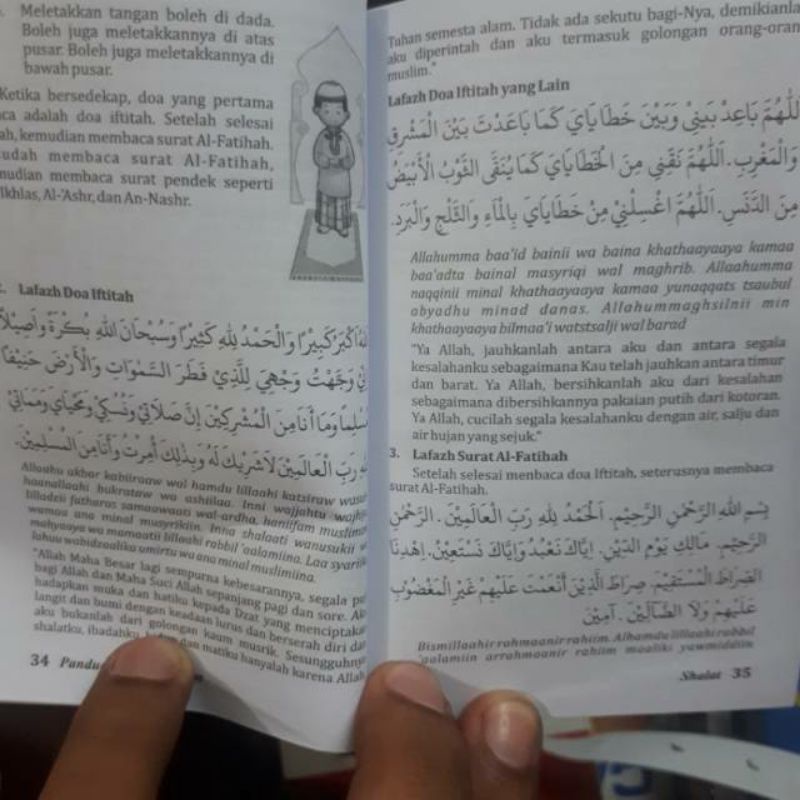 Meletakkan tangan boleh di dada.
Boleh juga meletakkannya di atas
pusar. Boleh juga meletakkannya di
bawah pusar.
Ketika bersedekap, doa yang pertama
adalah doa iftitah. Setelah selesai
kemudian membaca surat Al-Fatihah.
membaca surat Al-Fatihah,
membaca surat pendek seperti
Al-'Ashr, dan An-Nashr.
Lafazh Doa Iftitah
أَكْبَرُ كَبِيْرًا وَالْحَمْدُ لِلّٰهِ كَثِيْرًا وَسُبْحَانَ اللهِ بُكْرَةً وَأَصِيْلًا
وَجَّهْتُ وَجْهِيَ لِلَّذِيْ فَطَرَ السَّمٰوَاتِ وَالْأَرْضَ حَنِيْفًا
وَمَا أَنَا مِنَ الْمُشْرِكِيْنَ إِنَّ صَلَاتِيْ وَنُسُكِيْ وَمَحْيَايَ وَمَمَاتِيْ
رَبِّ الْعَالَمِيْنَ لَا شَرِيْكَ لَهُ وَبِذٰلِكَ أُمِرْتُ وَأَنَا مِنَ الْمُسْلِمِيْنَ.
Allaahu akbar kabiiraaw wal hamdu lillaahi katsiraw
bukrataw wa ashiilaa. Inni wajjahtu
fatharas samaawaati wal-ardha, haniifam
ana minal musyrikiin. Inna shalaati wanusukii
wa mamaatii lillaahi rabbil 'aalamiina. Laa
wabidzaalika umirtu wa ana minal muslimiina.
"Allah Maha Besar lagi sempurna kebesarannya, segala
bagi Allah dan Maha Suci Allah sepanjang pagi dan sore.
hadapkan muka dan hatiku kepada Dzat yang menciptakan
langit dan bumi dengan keadaan lurus dan berserah diri dan
aku bukanlah dari golongan kaum musrik. Sesungguhnya
shalatku, ibadahku, dan matiku hanyalah karena Allah
34
Tuhan semesta alam. Tidak ada sekutu bagi-Nya,
aku diperintah dan aku termasuk golongan
muslim."
Lafazh Doa Iftitah yang Lain
اَللّٰهُمَّ بَاعِدْ بَيْنِيْ وَبَيْنَ خَطَايَايَ كَمَا بَاعَدْتَ بَيْنَ الْمَشْرِقِ
وَالْمَغْرِبِ. اَللّٰهُمَّ نَقِّنِي مِنَ الْخَطَايَايَ كَمَا يُنَقَّى الثَّوْبُ الْأَبْيَضُ
مِنَ الدَّنَسِ. اَللّٰهُمَّ اغْسِلْنِيْ مِنْ خَطَايَايَ بِالْمَاءِ وَالثَّلْجِ وَالْبَرَدِ.
Allahumma baa'id bainii wa baina khathaayaaya kamaa
baa'adta bainal masyriqi wal maghrib. Allaahumma
naqqinii minal khathaayaaya kamaa yunaqqats tsaubul
abyadhu minad danas. Allahummaghsilnii min
khathaayaaya bilmaa'i watstsalji wal barad
"Ya Allah, jauhkanlah antara aku dan antara segala
kesalahanku sebagaimana Kau telah jauhkan antara timur
dan barat. Ya Allah, bersihkanlah aku dari kesalahan
sebagaimana dibersihkannya pakaian putih dari kotoran.
Ya Allah, cucilah segala kesalahanku dengan air, salju dan
air hujan yang sejuk."
3. Lafazh Surat Al-Fatihah
Setelah selesai menbaca doa Iftitah, seterusnya membaca
surat Al-Fatihah.
بِسْمِ اللهِ الرَّحْمٰنِ الرَّحِيْمِ. اَلْحَمْدُ لِلّٰهِ رَبِّ الْعَالَمِيْنَ. الرَّحْمٰنِ
الرَّحِيْمِ. مَالِكِ يَوْمِ الدِّيْنِ. إِيَّاكَ نَعْبُدُ وَإِيَّاكَ نَسْتَعِيْنُ. اِهْدِنَا
الصِّرَاطَ الْمُسْتَقِيْمَ. صِرَاطَ الَّذِيْنَ أَنْعَمْتَ عَلَيْهِمْ غَيْرِ الْمَغْضُوْبِ
عَلَيْهِمْ وَلَا الضَّالِّيْنَ. آمِيْنَ
Bismillaahir rahmaanir rahiim. Alhamdu lillaahi rabbil
'aalamiin arrahmaanir rahiim maaliki yawmiddiin
Shalat 35